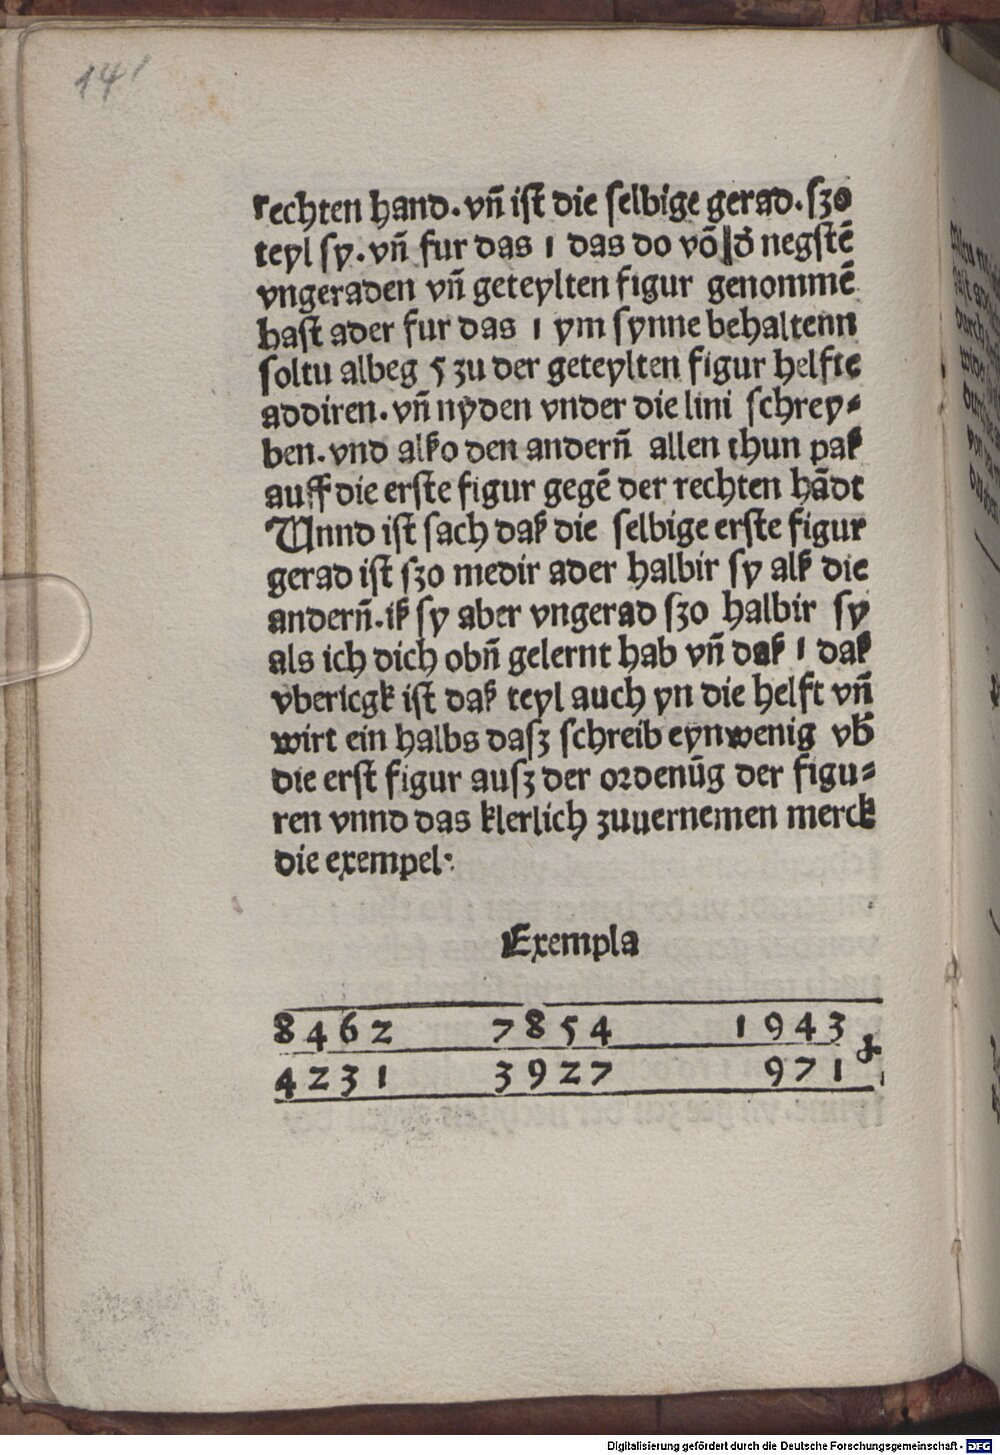 141
rechten hand. vñ ist die selbige gerad. szo
teyl sy. vñ fur das 1 das do võ d᷑ negstē
vngeraden vñ geteylten figur genommē
hast ader fur das 1 ym synne behaltenn
soltu albeg 5 zu der geteylten figur helfte
addiren. vñ nyden vnder die lini schrey⸗
ben. vnd alßo den anderñ allen thun paß
auff die erste figur gegē der rechten hādt
Vnnd ist sach daß die selbige erste figur
gerad ist szo medir ader halbir sy alß die
anderñ. iß sy aber vngerad szo halbir sy
als ich dich obñ gelernt hab vñ daß 1 daß
vbericgk ist daß teyl auch yn die helft vñ
wirt ein halbs dasz schreib eynwenig vb᷑
die erst figur ausz der ordenūg der figu⸗
ren vnnd das klerlich zuuernemen merck
die exempel:
Exempla
8462 7854 1943
4231 3927 971
Digitalisierung gefördert durch die Deutsche Forschungsgemeinschaft - DFG